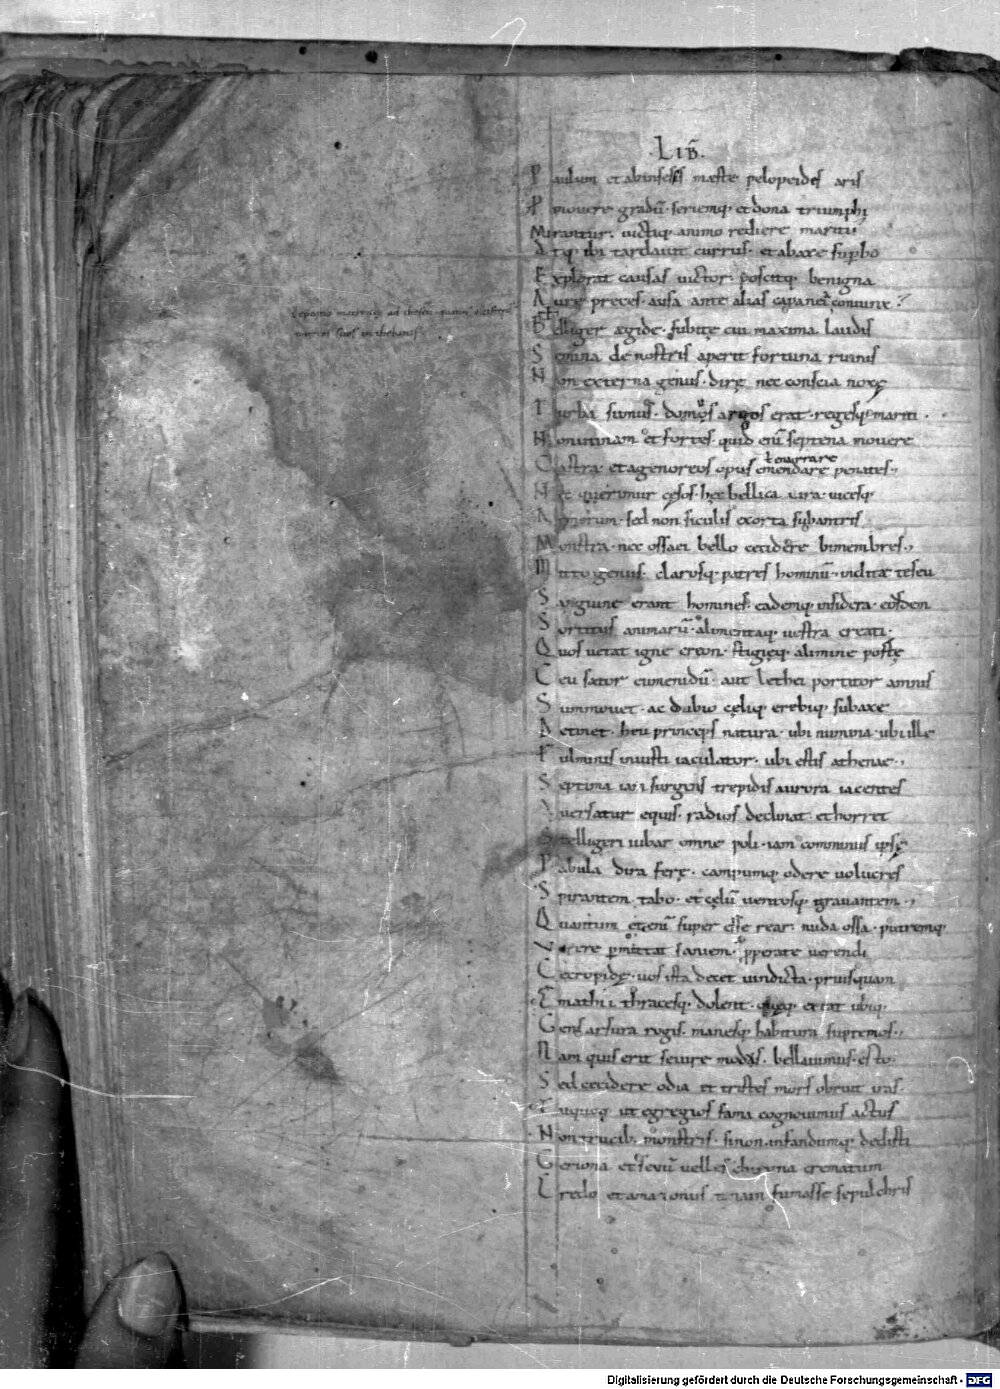 ·LIB̅.
Paulum et abinsessis mæste pelopeides aris
Pmouere gradū· seriemq; et dona triumphi
Mirantur· uictiq; animo rediere mariti
Atq; ibi tardauit currus· et abaxe supbo
Explorat causas uictor· poscitq; benigna
Aure preces· ausa ante alias capanei coniunx·
Belliger ægide· subitę cui maxima laudis
Semina de nostris aperit fortuna ruinis
Non externa genus· dirę nec conscia noxę
Turba sumus· domos argos erat· regesq; mariti·
Nonutinam et fortes· quid enī septena mouere
Castra· et agenoreos opus emendare penates·,
Nec querimur cęsos· hęc bellica iura· uicesq;
Armorum· sed non siculis exorta subantris
Monstra· nec ossaei bello cecidere bimembres·,
Mitto genus· clarosq; patres hominū· inclitæ teseu
Sanguine erant homines· eademq; insidera· eosdem
Sortitus animarū· alimentaq; uestra creati·
Quos uetat igne creon· stigięq; alimine portę
Ceu sator eumenidū· aut lethei portitor amnis
Summouet· ac dubio cęliq; erebiq; subaxe
Detinet· heu princeps natura· ubi numina· ubi ille
Fulminis iniusti iaculator· ubi estis athenae·,
Septima iam surgens trepidis aurora iacentes
Auersatur equis· radios declinat· et horret
Stelligeri iubar omne poli· iam comminus ipsę
Pabula dira ferę· campumq; odere uolucres
Spirantem tabo· et cęlū uentosq; grauantem·,
Quantum etenī super esse rear· nuda ossa· putremq;
Vertere pmittat saniem· pperate uerendi
Cecropidę· uos ista decet uindicta· priusquam
Emathii thracesq; dolent· quęq; extat ubiq;
Gens arsura rogis· manesq; habitura supremos·,
Nam quis erit seuire modus· bellauimus· esto·
Sed cecidere odia et tristes mors obruit iras·
Tuquoq; ut egregios fama cognouimus actus
Non trucib; monstris· sinon infandumq; dedisti
Geriona· et seuū uelles chirona crematum
Credo et amazonius etiam fumasse sepulchris
Digitalisierung gefördert durch die Deutsche Forschungsgemeinschaft - DFG